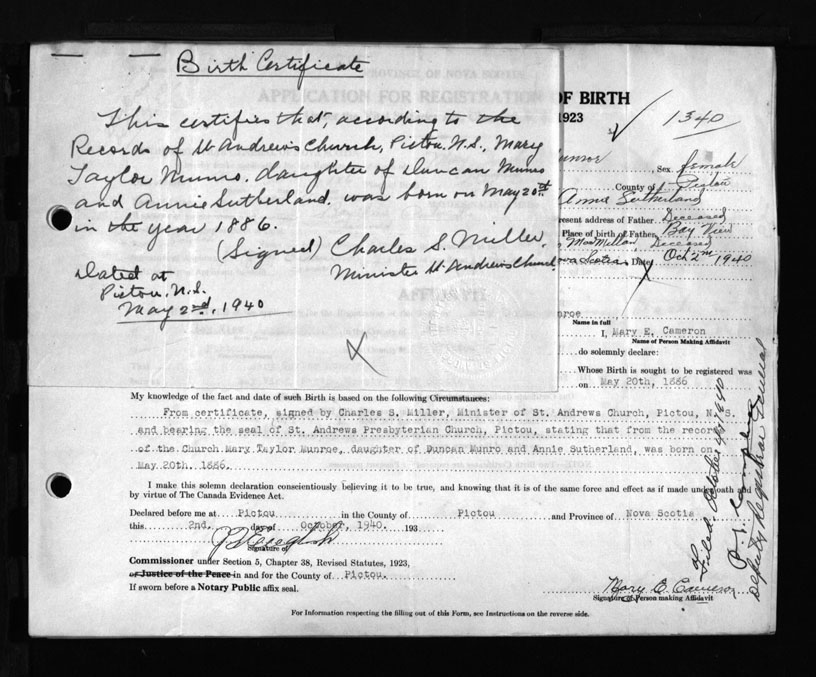 Birth Certificate
This certifies that, according to the
Records of St Andrews Church, Pictou, N.S., Mary
Taylor Munro, daughter of Duncan Munro
and Annie Sutherland, was born on May 20th
in the year 1886.
(Signed) Charles S. Miller,
Minister St Andrews Church
Dated at
Pictou, N.S.
May 2nd, 1940
PROVINCE OF NOVA SCOTIA
APPLICATION FOR REGISTRATION OF BIRTH
1923
1340
Sex female
County of Pictou
Annie Sutherland
present address of Father Deceased
Place of birth of Father Bay View
MacMillan, Deceased
Nova Scotia Date Oct 2nd 1940
AFFIDAVIT
Name in full
I, Mary E. Cameron
Name of Person Making Affidavit
do solemnly declare:
Whose Birth is sought to be registered was
on May 20th, 1886
My knowledge of the fact and date of such Birth is based on the following Circumstances:
From certificate, signed by Charles S. Miller, Minister of St. Andrews Church, Pictou, N. S.
and bearing the seal of St. Andrews Presbyterian Church, Pictou, stating that from the record
of the Church Mary Taylor Munroe, daughter of Duncan Munro and Annie Sutherland, was born on
May 20th. 1886.
I make this solemn declaration conscientiously believing it to be true, and knowing that it is of the same force and effect as if made under oath and
by virtue of The Canada Evidence Act.
Declared before me at Pictou in the County of Pictou and Province of Nova Scotia
this 2nd. day of October, 1940. 193
Signature of
Commissioner under Section 5, Chapter 38, Revised Statutes, 1923,
or Justice of the Peace in and for the County of Pictou.
If sworn before a Notary Public affix seal.
Mary E. Cameron
Signature of Person making Affidavit
For Information respecting the filling out of this Form, see Instructions on the reverse side.
Filed October 4, 1940
Deputy Registrar General